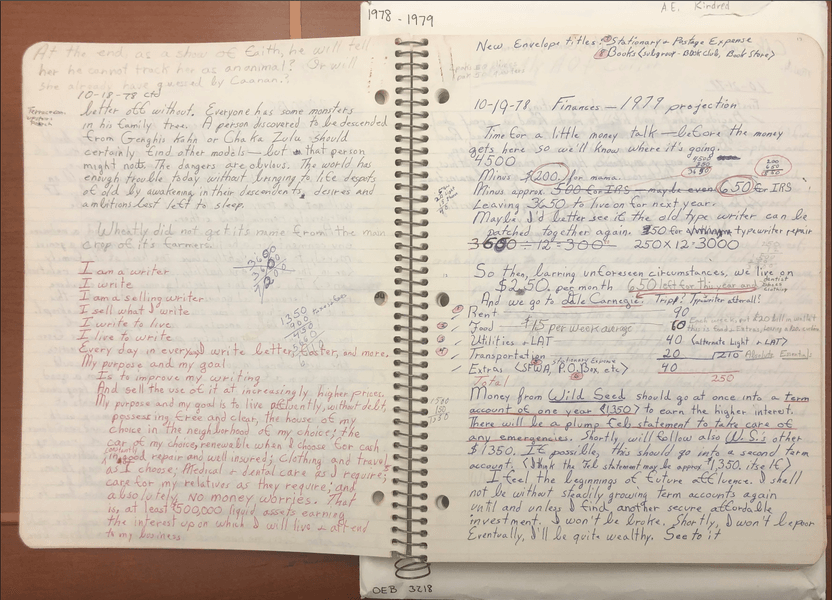 At the end, as a show of faith, he will tell
her he cannot track her as an animal? Or will
she already have guessed by Canaan.
10-18-78 ctd
better off without. Everyone has some monsters
in his family tree. A person discovered to be descended
from Genghis Kahn or Chaka Zulu should
certainly find other models—but that person
might not. The dangers are obvious. The world has
enough trouble today without bringing to life despots
of old by awakening in their descendents, desires and
ambitions best left to sleep.
Wheatly did not get its name from the main
crop of its farmers.
I am a writer
I write
I am a selling writer
I sell what I write
I write to live
I live to write
Every day in every way I write better, faster, and more.
My purpose and my goal
Is to improve my writing
And sell the use of it at increasingly higher prices.
My purpose and my goal is to live affluently, without debt,
possessing free and clear, the house of my
choice in the neighborhood of my choice; the
car of my choice, renewable when I choose for cash
in constantly good repair and well insured; clothing and travel
as I choose; Medical + dental care as I require;
care for my relatives as they require; and,
absolutely no money worries. That
is, at least $500,000 liquid assets earning
the interest upon which I will live + attend
to my business
1350
900
1978 - 1979
A.E. Kindred
New Envelope titles: Stationary + Postage Expense
Books (subgroup - Book Club, Book Store)
10-19-78 Finances — 1979 projection
Time for a little money talk—before the money
gets here so we'll know where it's going.
4500
Minus $200. for mama.
Minus approx. 500 for IRS — maybe even 650 for IRS
Leaving 3650 to live on for next year.
Maybe I'd better see if the old type writer can be
patched together again. 50 for typewriter repair
3600 ÷ 12 = 300 250 x 12 = 3000
So then, barring unforeseen circumstances, we live on
$250. per month 650 left for this year and
And we go to Dale Carnegie.
Rent 90
Food $15 per week average 60
Utilities + LAT 40 (alternate Light + LAT)
Transportation 20 210 Absolute Essentials
Stationary Expense
Extras (SFWA, P.O. Box etc) 40
Total 250
Money from Wild Seed should go at once into a term
account of one year ($1350) to earn the higher interest.
There will be a plump Feb statement to take care of
any emergencies. Shortly will follow also W.S.'s other
$1350. If possible, this should go into a second term
account. (I think the Feb statement may be approx. $1350. itself)
I feel the beginnings of future affluence. I shall
not be without steadily growing term accounts again
until and unless I find another secure affordable
investment. I won't be broke. Shortly, I won't be poor
Eventually, I'll be quite wealthy. See to it
OEB 3218